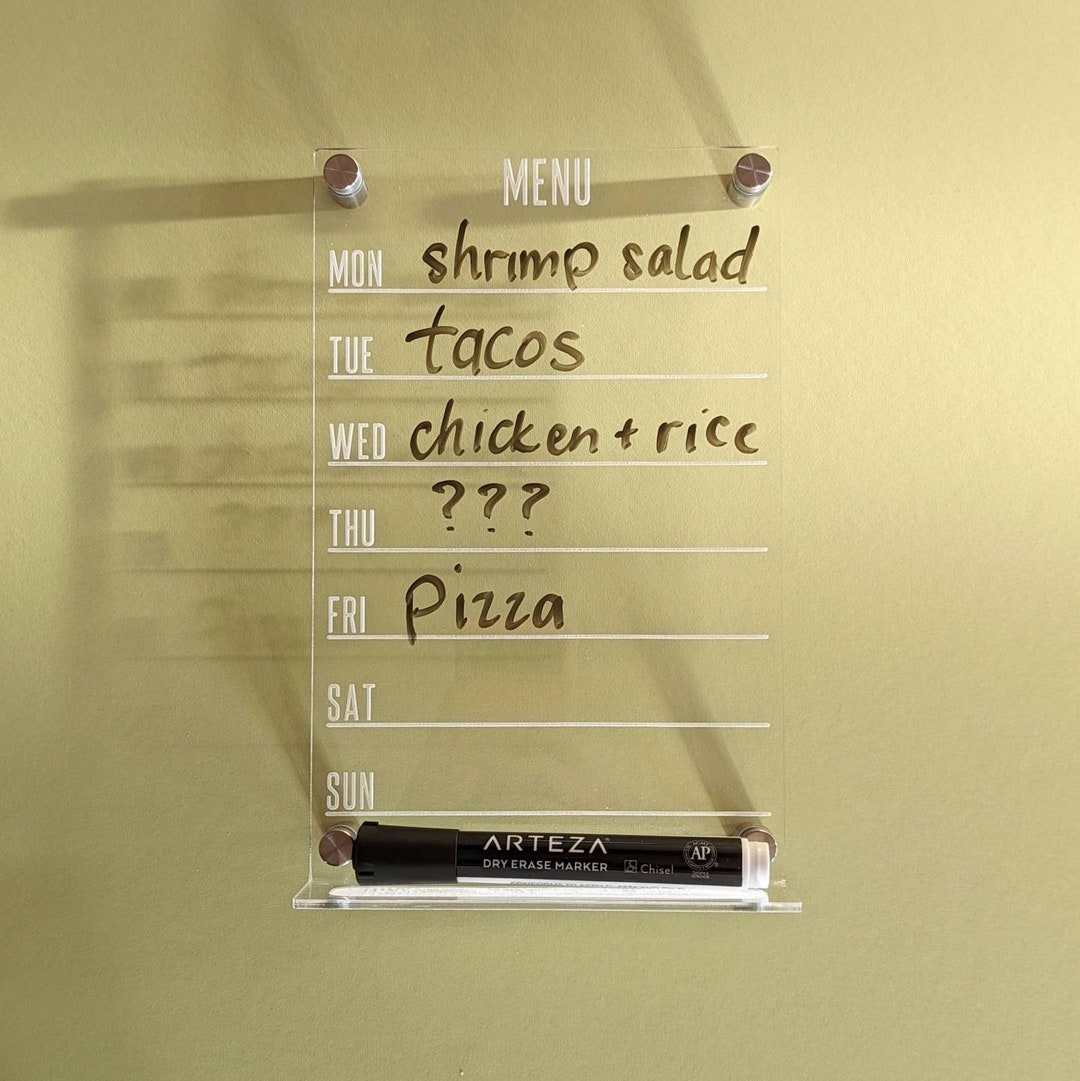 MENU
MON shrimp salad
TUE tacos
WED chicken + rice
THU ???
FRI pizza
SAT
SUN
ARTEZA
DRY ERASE MARKER Chisel AP